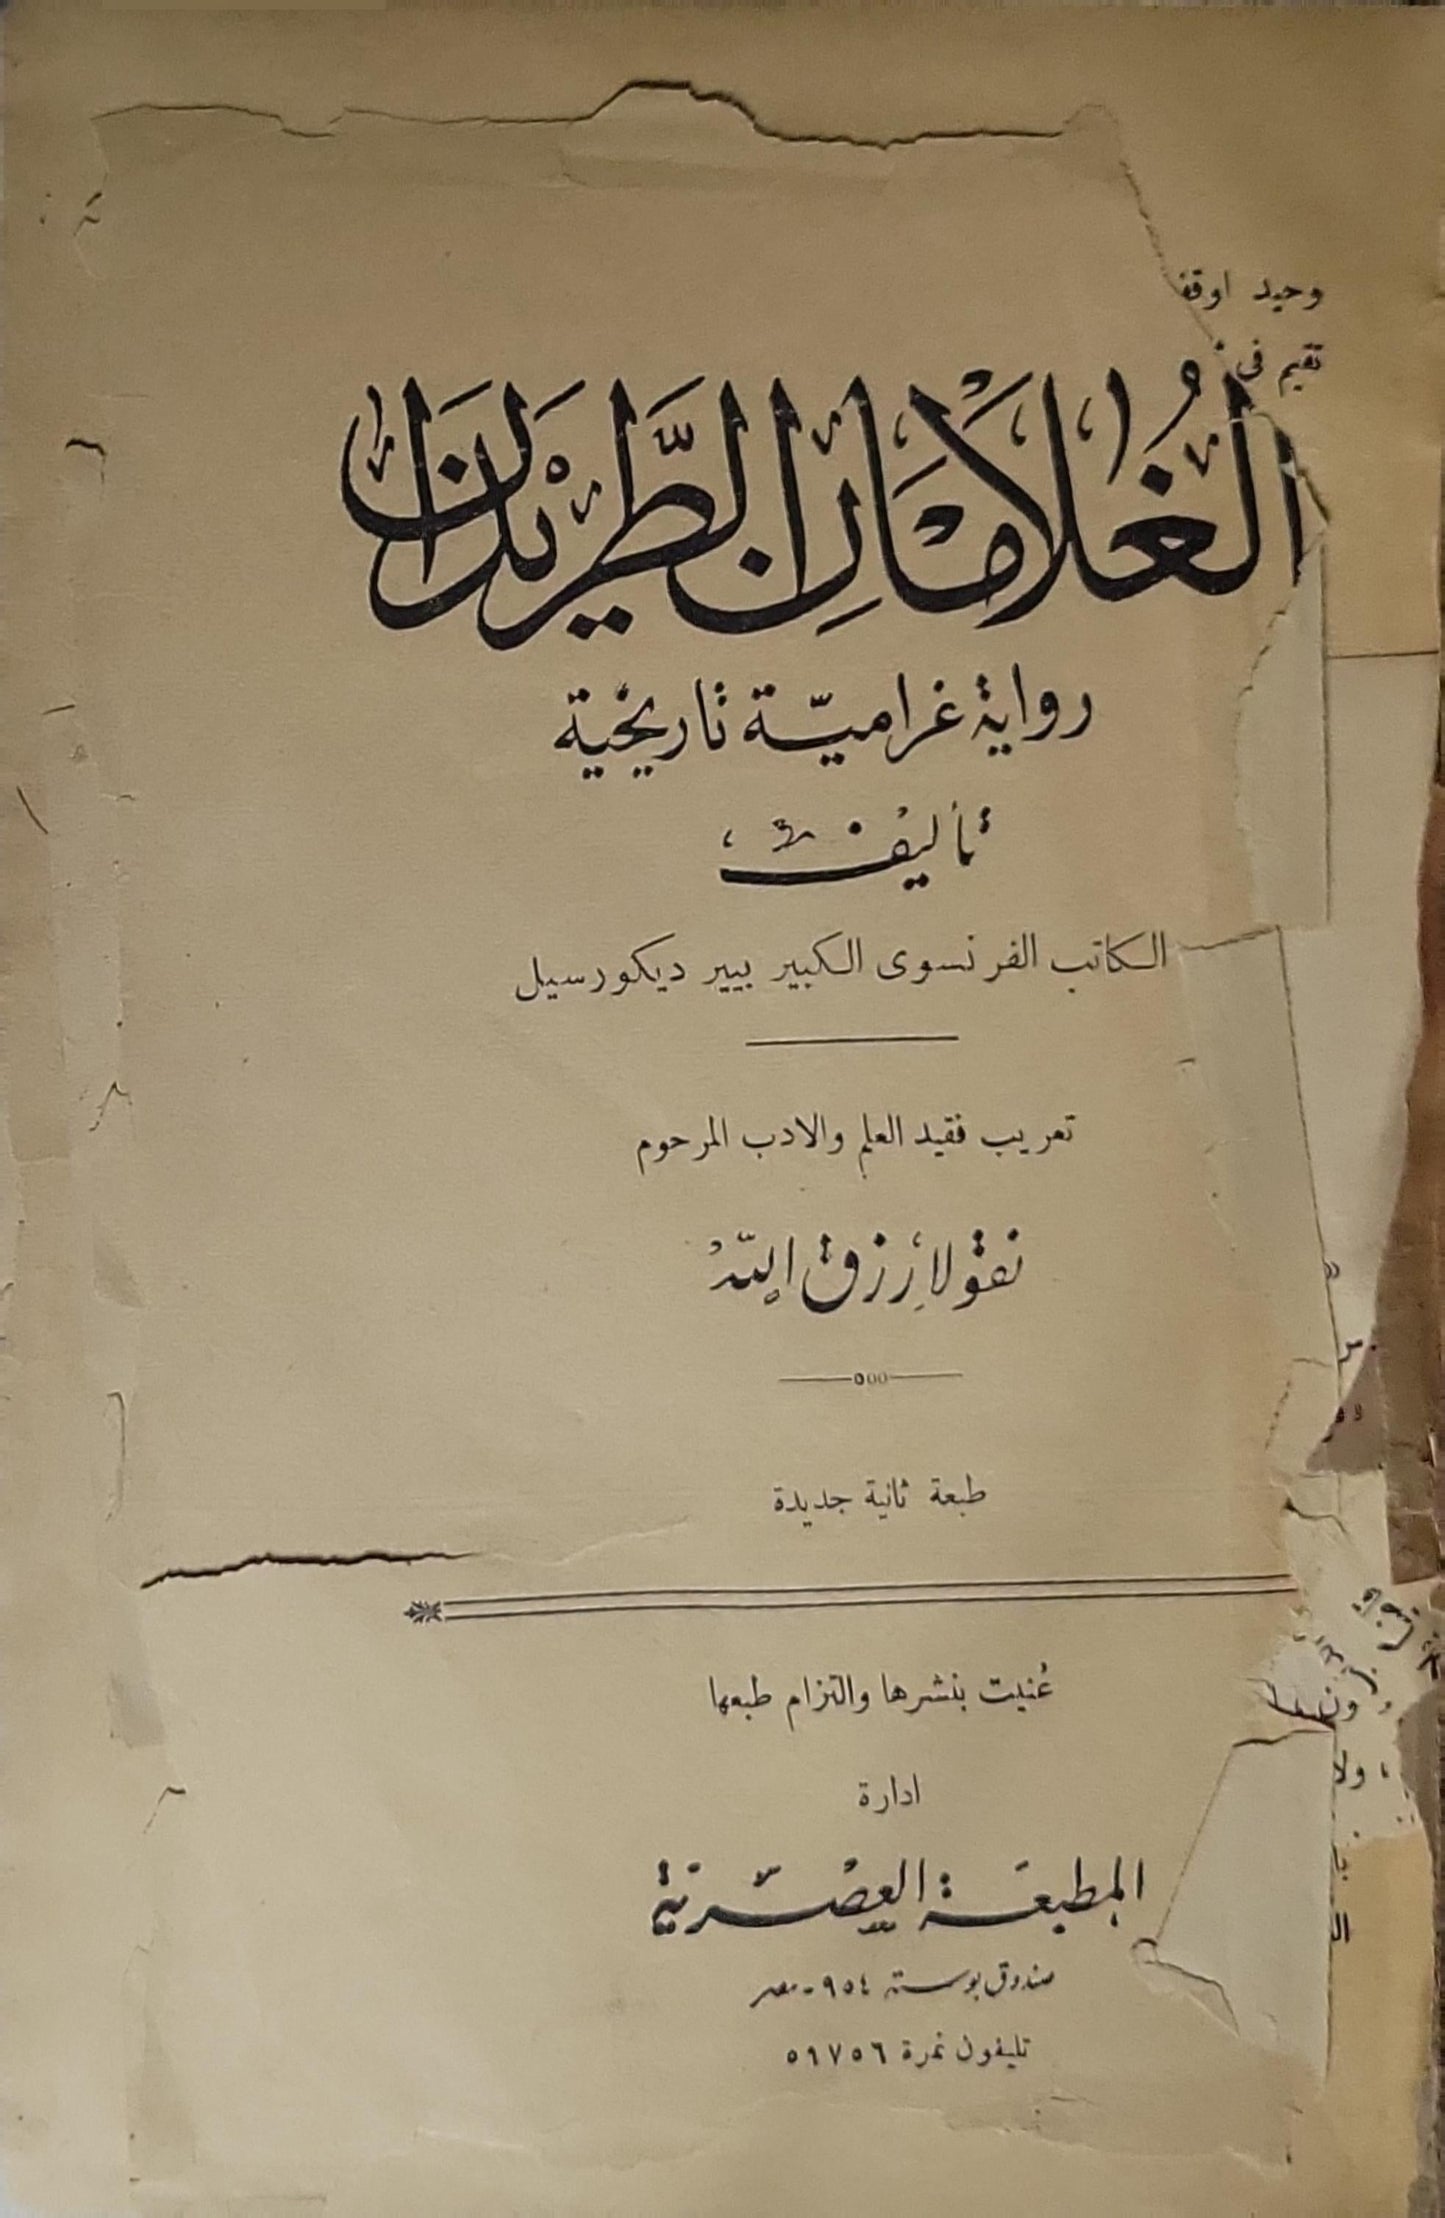 وحيد اوقف
تقيم في
الغُلَامَانِ الطَّرِيْدَانِ
رواية غراميّة تاريخية
تأليف
الكاتب الفرنسوى الكبير بيير ديكورسيل
تعريب فقيد العلم والادب المرحوم
نقولا رزق الله
طبعة ثانية جديدة
عُنيت بنشرها والتزام طبعها
ادارة
المطبعة العصرية
صندوق بوسته ٩٥٤ - مصر
تليفون نمرة ٥٦٧٥٦
ولا